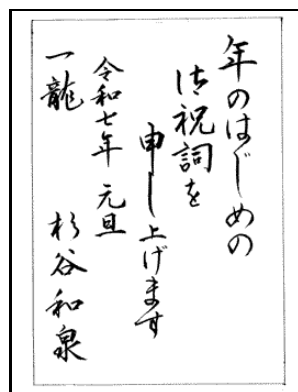 年のはじめの
御祝詞を
申し上げます
令和七年 元旦
一龍 杉谷和泉